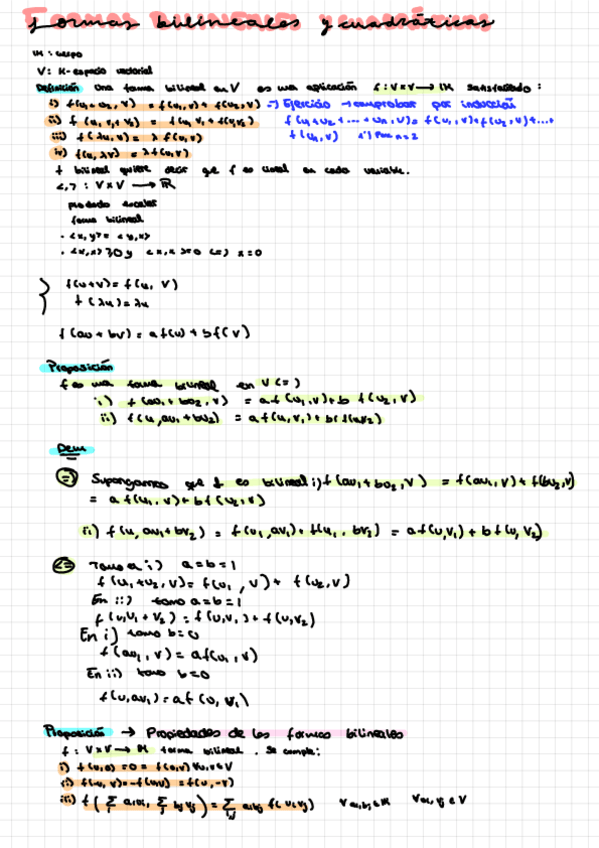 Formas bilineales y cuadráticas
K : cuerpo
V: K-espacio vectorial
Definición Una forma bilineal en V es una aplicación f: V×V → K satisfaciendo :
i) f(u₁+u₂, V) = f(u₁, v) + f(u₂, V) → Ejercicio → comprobar por inducción
ii) f (u, v₁+v₂) = f(u, v₁) + f(u, v₂) f(u₁+u₂+...+un, v) = f(u₁, v) + f(u₂, v) + ... +
iii) f(λu, v) = λ f(u, v) f(un, v) n=2
iv) f(u, λv) = λf(u, v)
f bilineal quiere decir que f es lineal en cada variable.
<,> : V×V → R
producto escalar
forma bilineal
· <x, y> = <y, x>
· <x, x> ≥0 y <x, x>=0 <=> x=0
f(u+v) = f(u, V)
f(λu) = λu
f(au + bv) = af(u) + bf(V)
Proposición
f es una forma bilineal en V <=>
i) f(au₁ + bu₂, v) = af(u₁, v) + b f(u₂, v)
ii) f(u, av₁ + bv₂) = af(u, v₁) +
Dem
=>) Supongamos que f es bilineal i) f(au₁+bu₂, V) = f(au₁, v) + f(bu₂, v)
= af(u₁, v) + bf(u₂, v)
ii) f(u, av₁+bv₂) = f(u, av₁) + f(u, bv₂) = af(u, v₁) + bf(u, v₂)
<= Tomo i) a=b=1
f(u₁+u₂, v) = f(u₁, v) + f(u₂, v)
En ii) tomo a=b=1
f(u, v₁ + v₂) = f(u, v₁) + f(u, v₂)
En i) tomo b=0
f(au₁, v) = af(u₁, v)
En ii) tomo b=0
f(u, av₁) = af(u, v₁)
Proposición → Propiedades de las formas bilineales
f : V×V → K forma bilineal. Se cumple:
i) f(u, 0) = 0 = f(0, v) ∀u, v ∈ V
ii) f(-u, v) = -f(u, v) = f(u, -v)
iii) f(∑ aiui, ∑ bjvj) = ∑ aibj f(ui, vj) ∀ai, bj ∈ K ∀ui, vj ∈ V